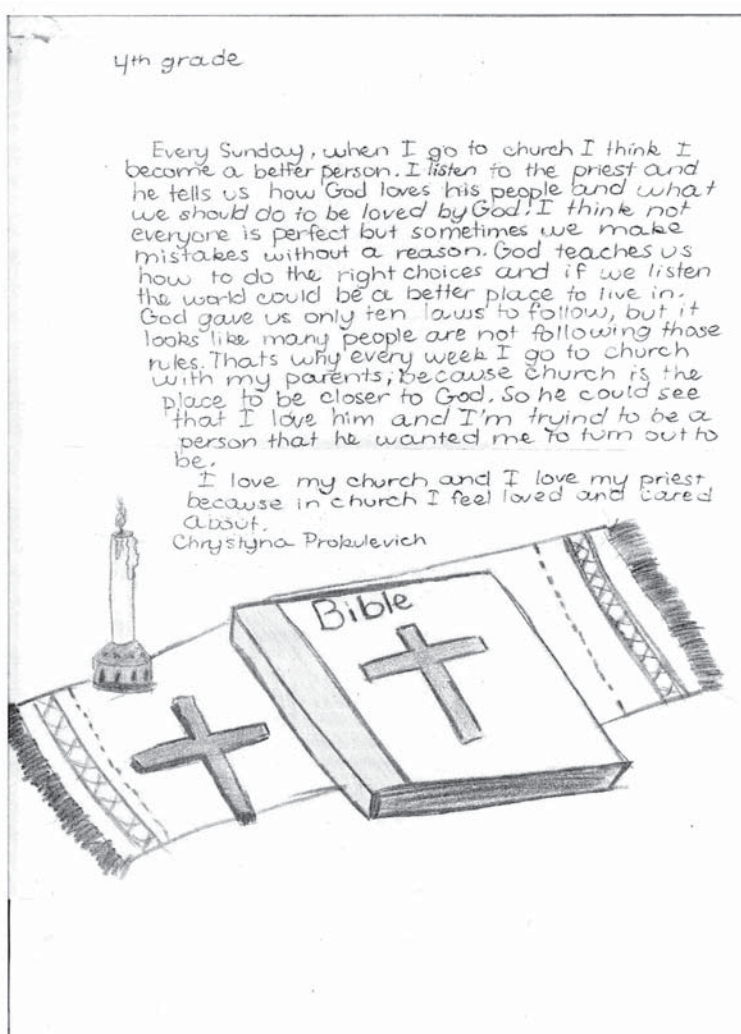 4th grade
Every Sunday, when I go to church I think I
become a better person. I listen to the priest and
he tells us how God loves his people and what
we should do to be loved by God. I think not
everyone is perfect but sometimes we make
mistakes without a reason. God teaches us
how to do the right choices and if we listen
the world could be a better place to live in.
God gave us only ten laws to follow, but it
looks like many people are not following those
rules. Thats why every week I go to church
with my parents, because church is the
place to be closer to God. So he could see
that I love him and I'm tryind to be a
person that he wanted me to turn out to
be.
I love my church and I love my priest
because in church I feel loved and cared
about.
Chrystyna Prokulevich
Bible